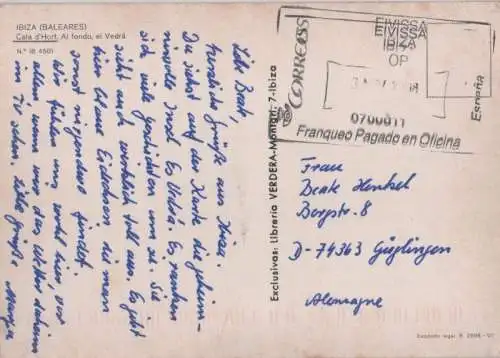 IBIZA (BALEARES)
Cala d'Hort. Al fondo, el Vedrá
N.º IB 4501
Liebe Beate,
herzliche Grüße aus Ibiza.
Du siehst auf der Karte die geheim-
nisvolle Insel Es Vedrá. Es ranken
sich viele Geschichten um sie. Sie
sieht auch wirklich toll aus. Es gibt
hier blaue Eidechsen die man
sonst nirgendwo findet.
Wir fühlen uns wohl hier, vor
allem, wenn wir das Wetter daheim
im TV sehen. Liebe Grüße
Exclusivas: Librería VERDERA-Montgrí, 7-Ibiza
CORREOS
EIVISSA
EIVISSA
IBIZA
OP
0700011
Franqueo Pagado en Oficina
España
Frau
Beate Henkel
Bergstr. 8
D-74363 Güglingen
Alemagne
Depósito legal B.